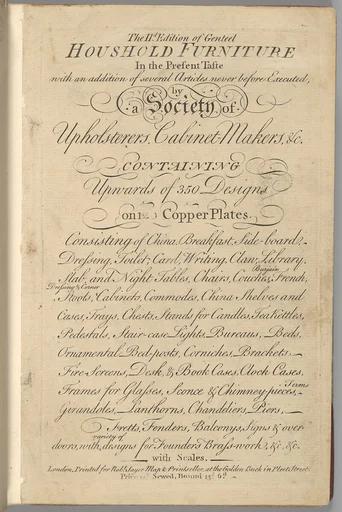 The II.ᵈ Edition of Genteel
HOUSHOLD FURNITURE
In the Preſent Taſte
with an addition of several Articles never before Executed,
by
a Society of
Upholsterers, Cabinet-Makers, &c.
CONTAINING
Upwards of 350 Designs
on Copper Plates.
Consisting of China, Breakfast, Side-boards,
Dreſsing, Toilet, Card, Writing, Claw, Library,
Slab, and Night Tables, Chairs, Couches, French,
Dreſsing & Corner
Stools, Cabinets, Commodes, China Shelves and
Cases, Trays, Chests, Stands for Candles, Tea Kettles,
Pedestals, Stair-case Lights, Bureaus, Beds,
Ornamental Bed-posts, Corniches, Brackets
Fire-Screens, Desk, & Book-Cases, Clock-Cases,
Terms
Frames for Glaſses, Sconce & Chimney-pieces,
Girandoles, Lanthorns, Chandeliers, Piers,
Fretts, Fenders, Balconys, Signs & over-
variety of
doors, with designs for Founders Braſs-work, &c. &c.
with Scales.
London, Printed for Rob.ᵗ Sayer Map & Printseller, at the Golden Buck in Fleet Street.
Sewed, Bound